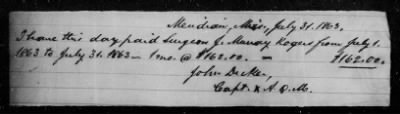 Meridian, Miss, July 31. 1863,
I have this day paid Surgeon J. Murray Rogers from July 1.
1863 to July 31. 1863 — 1 mo. @ $162.00. — $162.00.
John Decker,
Capt. & A. Q. M.